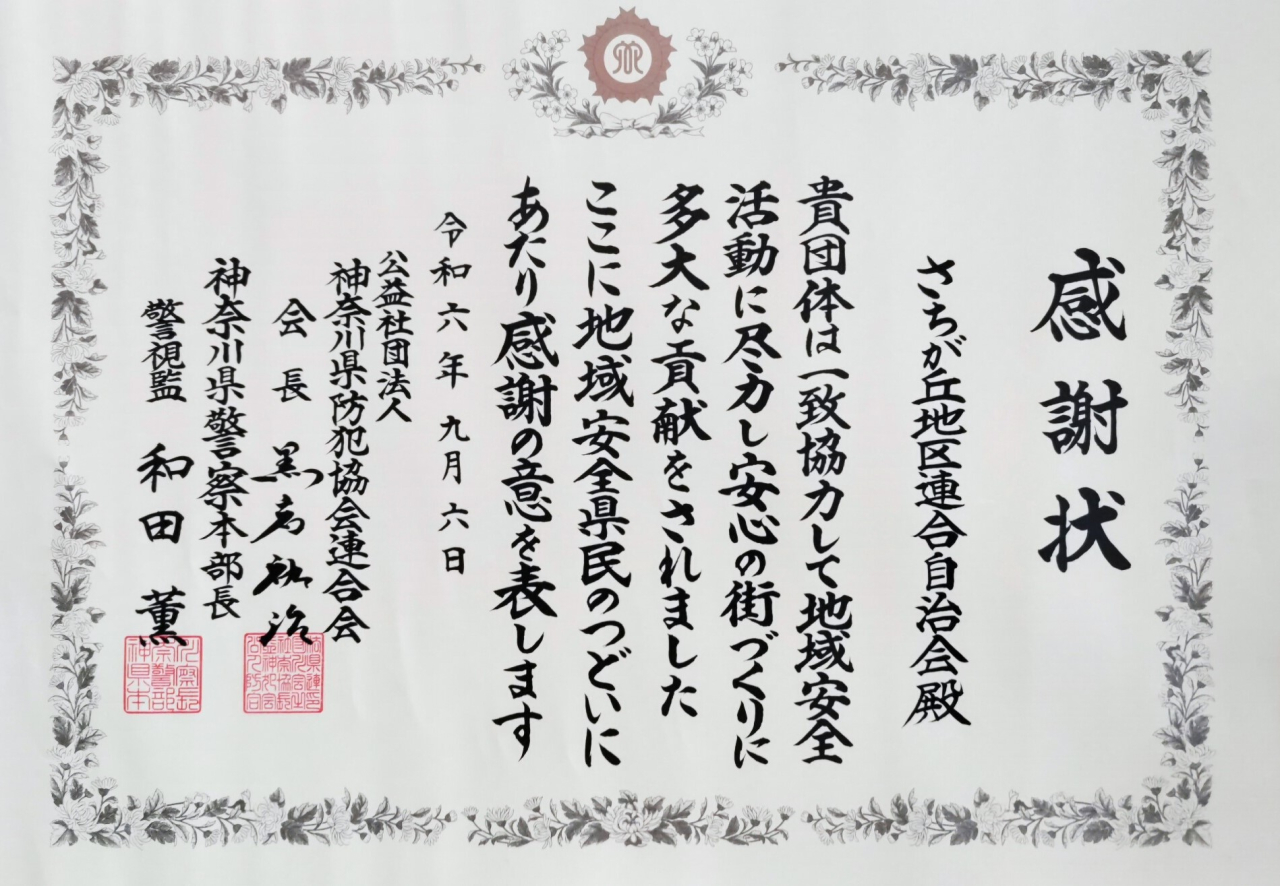 感謝状
さちが丘地区連合自治会殿
貴団体は一致協力して地域安全
活動に尽力し安心の街づくりに
多大な貢献をされました
ここに地域安全県民のつどいに
あたり感謝の意を表します
令和六年九月六日
公益社団法人
神奈川県防犯協会連合会
会長
神奈川県警察本部長
警視監 和田 薫